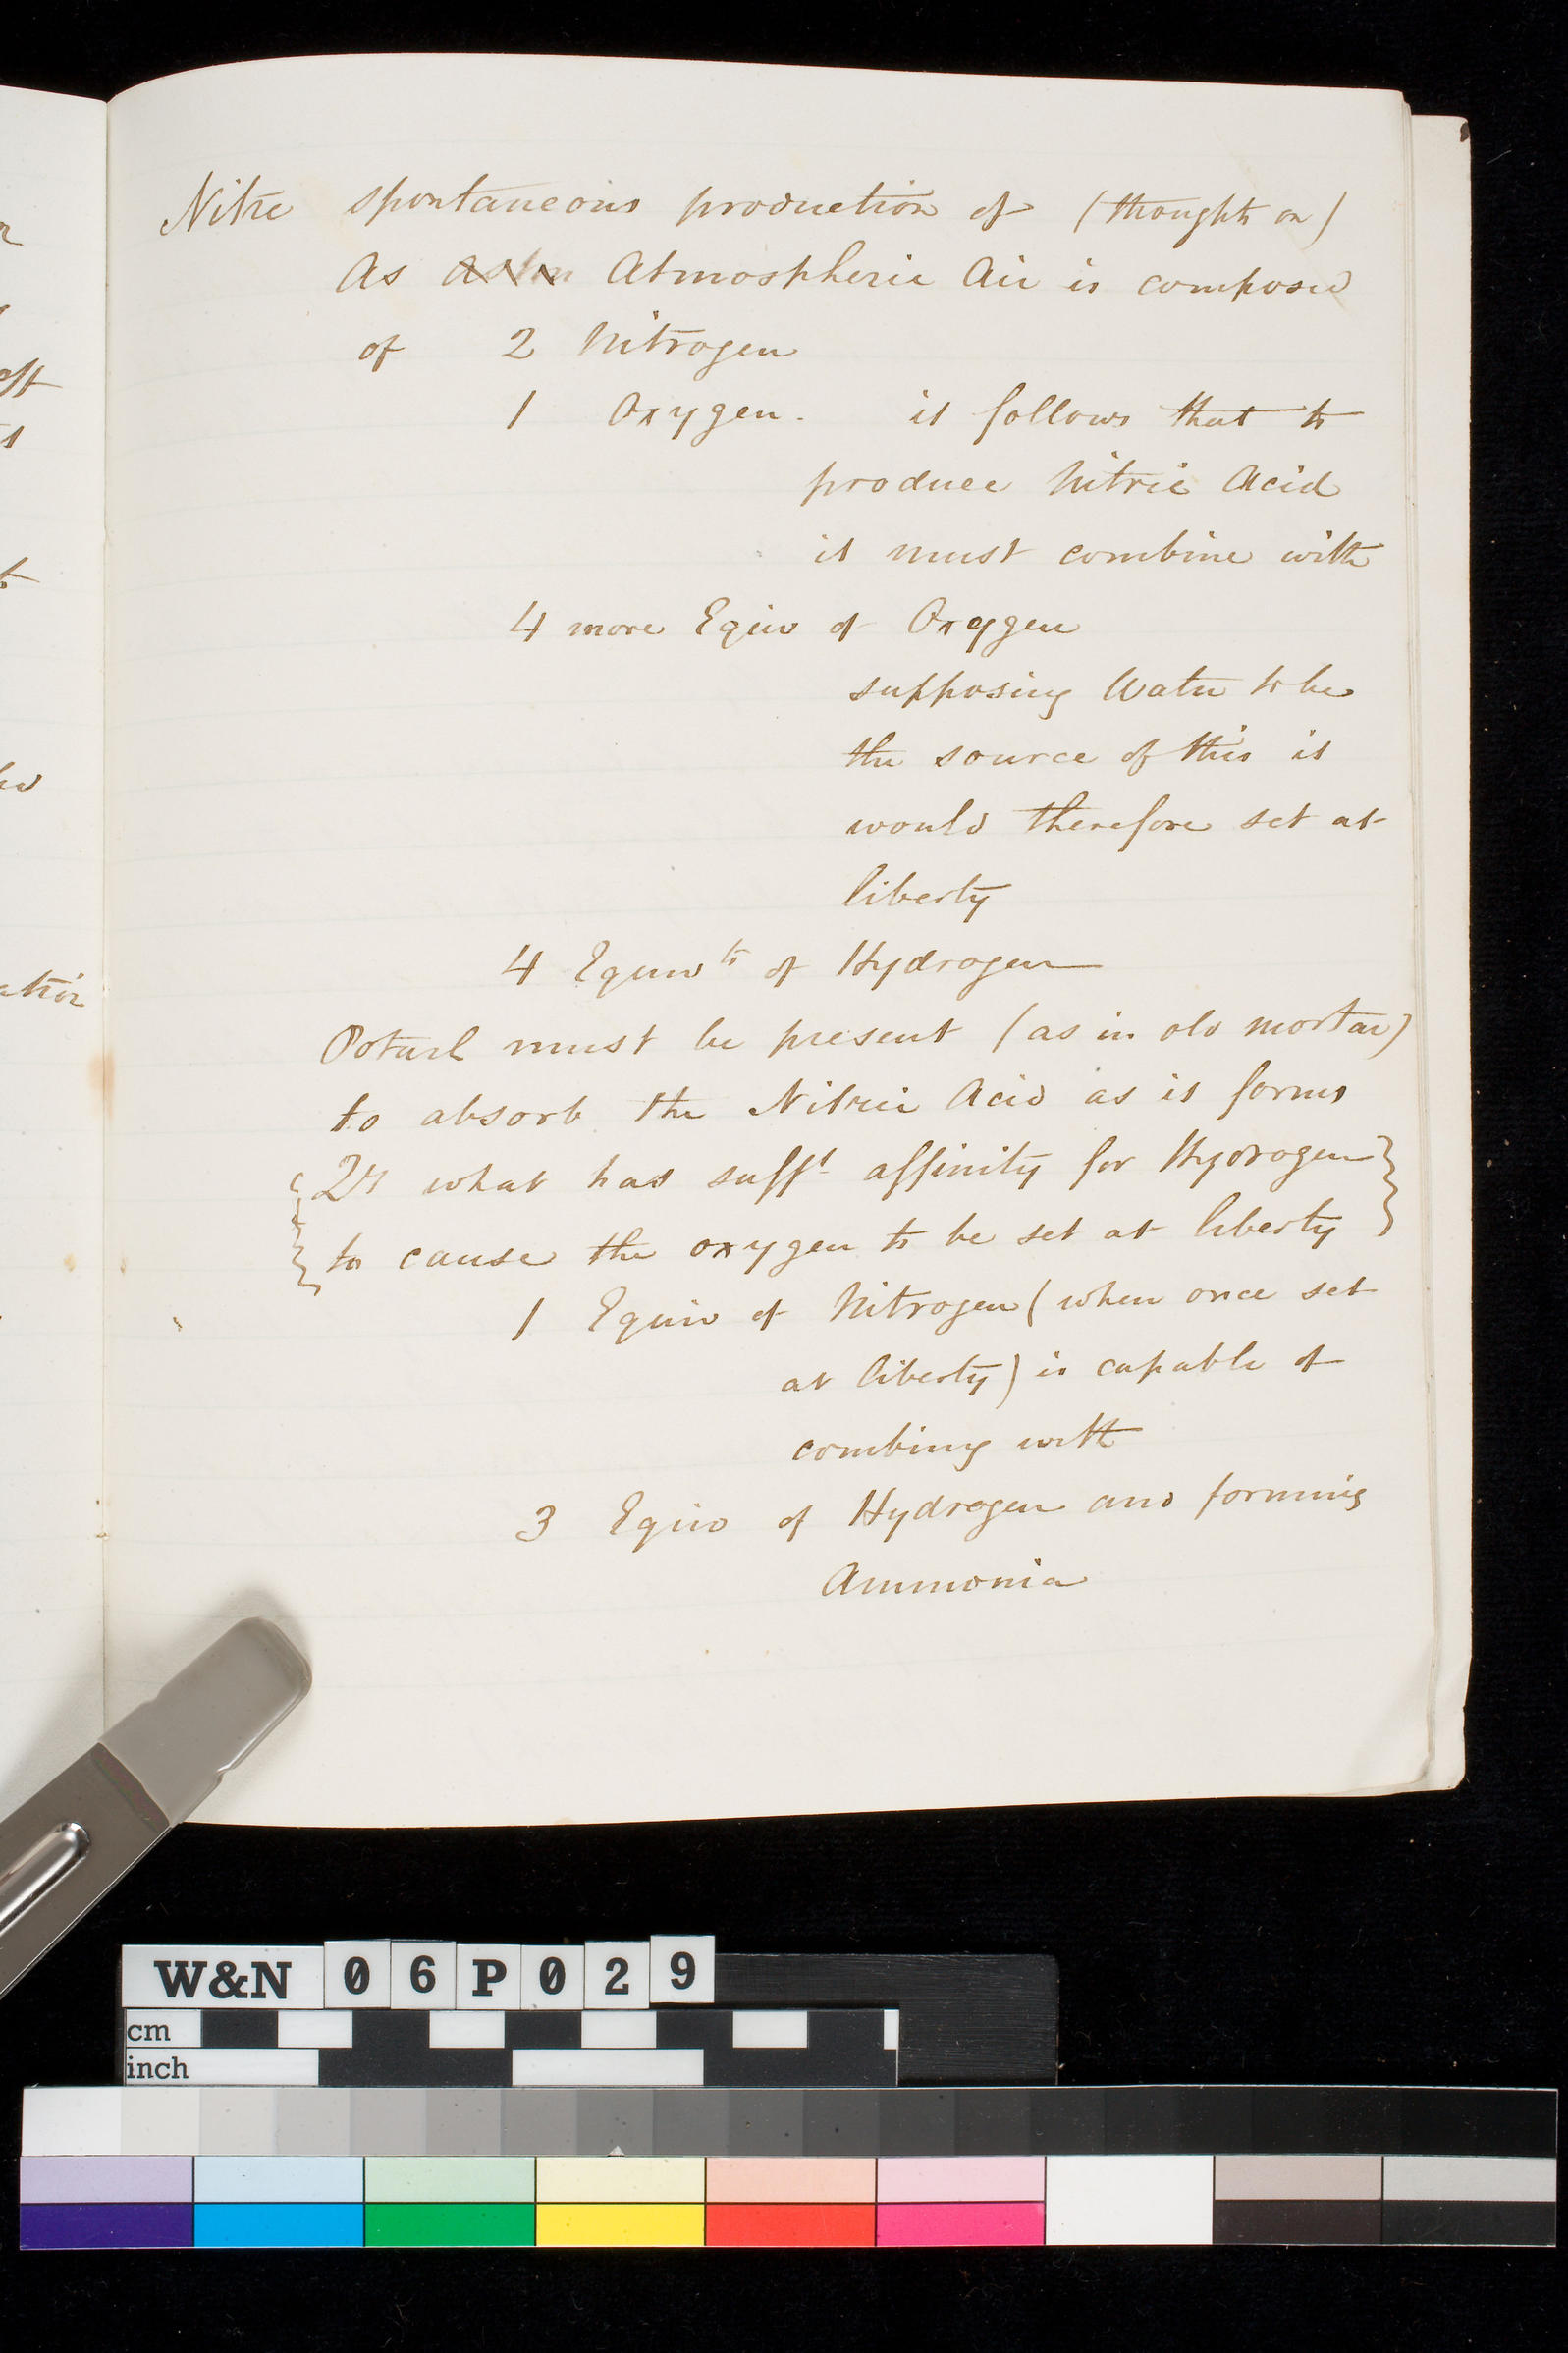 Nitre spontaneous production of (thoughts on)
As Atmospheric Air is composed
of 2 Nitrogen
1 Oxygen. it follows that to
produce Nitric Acid
it must combine with
4 more Equiv of Oxygen
supposing Water to be
the source of this it
would therefore set at
liberty
4 Equivts of Hydrogen
Potash must be present (as in old mortar)
to absorb the Nitric Acid as it forms
{ Qy what has sufft affinity for Hydrogen }
{ to cause the oxygen to be set at liberty }
1 Equiv of Nitrogen (when once set
at liberty) is capable of
combing with
3 Equiv of Hydrogen and forming
Ammonia
W&N 06P029
cm
inch